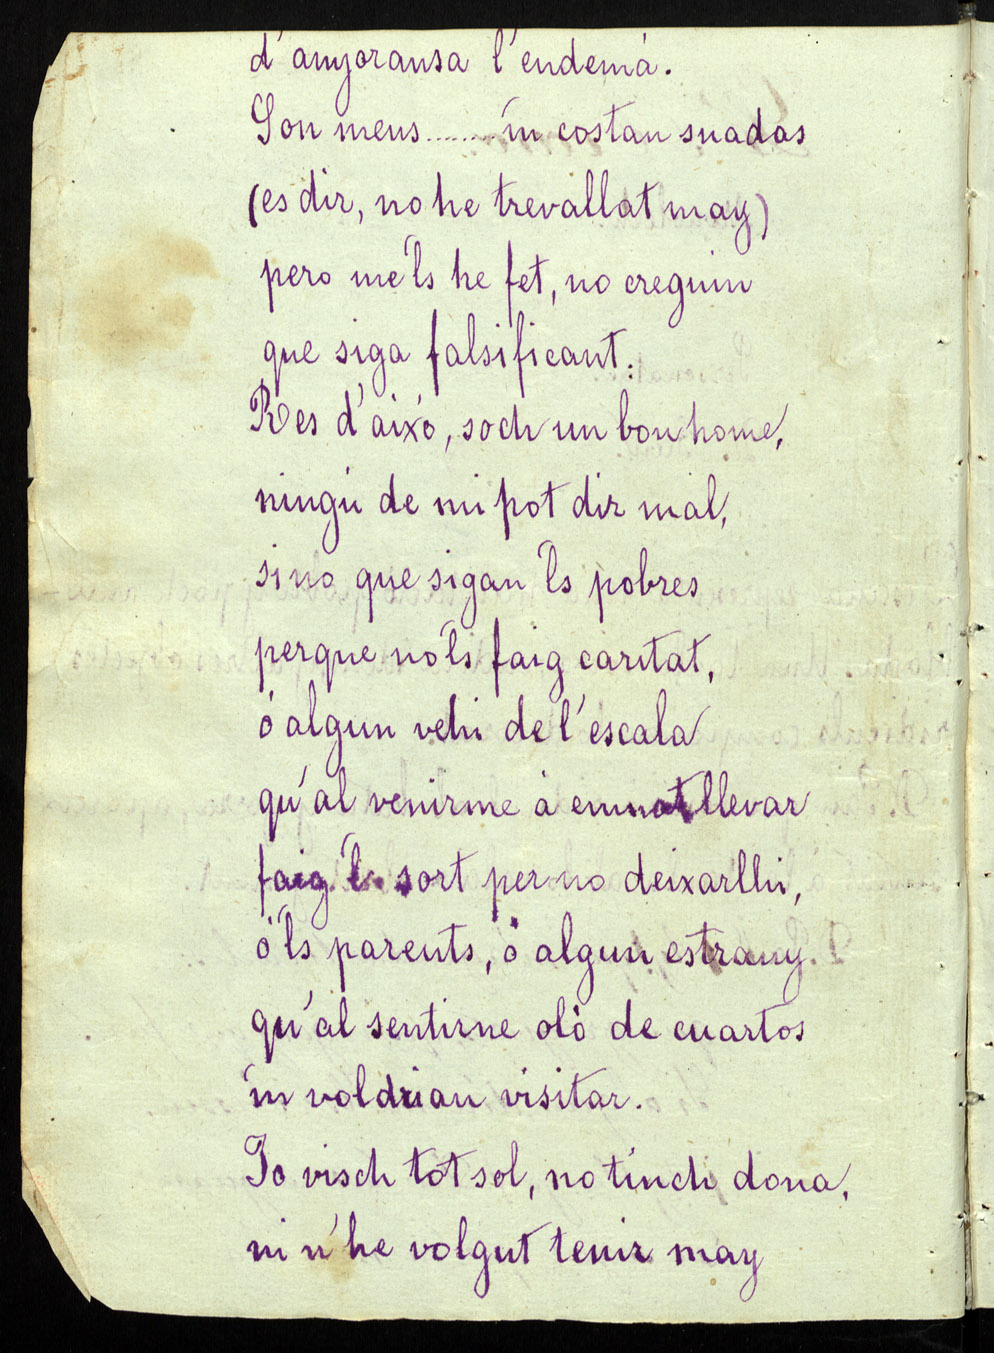 d'anyoransa l'endemá.
Son meus....... 'm costan suadas
(es dir, no he trevallat may)
pero me 'ls he fet, no creguin
que siga falsificant:
Res d'aixó, soch un bon home,
ningú de mi pot dir mal,
si no que sigan 'ls pobres
perque no 'ls faig caritat,
ó algun vehi de l'escala
qu'al venirme á emmatllevar
faig 'l sort per no deixarlhi,
ó 'ls parents, ó algun estrany
qu'al sentirne oló de cuartos
'm voldrian visitar.
Jo visch tot sol, no tinch dona,
ni n'he volgut tenir may